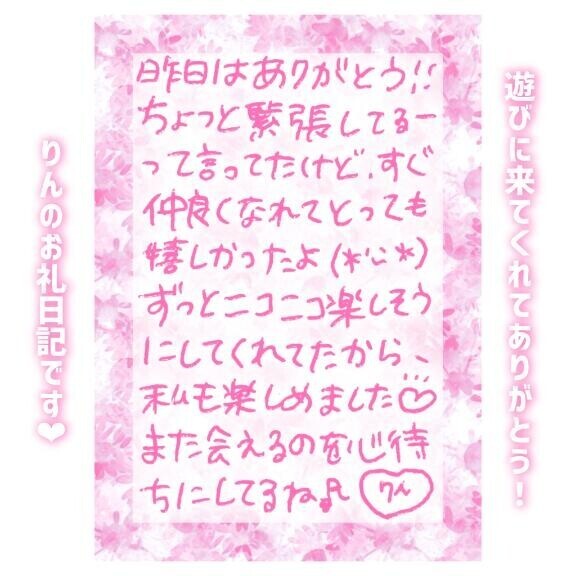 遊びに来てくれてありがとう！
昨日はありがとう!!
ちょっと緊張してるー
って言ってたけど、すぐ
仲良くなれてとっても
嬉しかったよ(*'ω'*)
ずっとニコニコ楽しそう
にしてくれてたから、
私も楽しめました♡
また会えるのを心待
ちにしてるね♪ りん
りんのお礼日記です❤